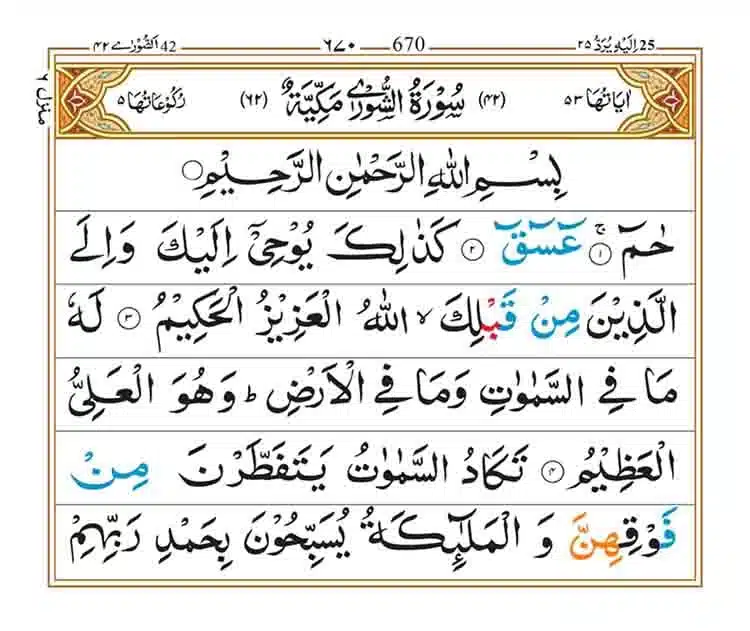 25 اِلَیْهِ یُرَدُّ ۲۵ 670 ۶۷۰ 42 اَلشُّوْرٰے ۴۲
اٰیَاتُهَا ۵۳ (۴۲) سُوْرَةُ الشُّوْرٰے مَكِّیَّةٌ (۶۲) رُكُوْعَاتُهَا ۵
منزل ۶
بِسْمِ اللّٰهِ الرَّحْمٰنِ الرَّحِیْمِ
حٰمٓ ۚ﴿۱﴾ عٓسٓقٓ ﴿۲﴾ كَذٰلِكَ یُوْحِیْۤ اِلَیْكَ وَاِلَی
الَّذِیْنَ مِنْ قَبْلِكَ ۙ اللّٰهُ الْعَزِیْزُ الْحَكِیْمُ ﴿۳﴾ لَهٗ
مَا فِی السَّمٰوٰتِ وَمَا فِی الْاَرْضِ ؕ وَهُوَ الْعَلِیُّ
الْعَظِیْمُ ﴿۴﴾ تَكَادُ السَّمٰوٰتُ یَتَفَطَّرْنَ مِنْ
فَوْقِهِنَّ وَ الْمَلٰٓئِكَةُ یُسَبِّحُوْنَ بِحَمْدِ رَبِّهِمْ